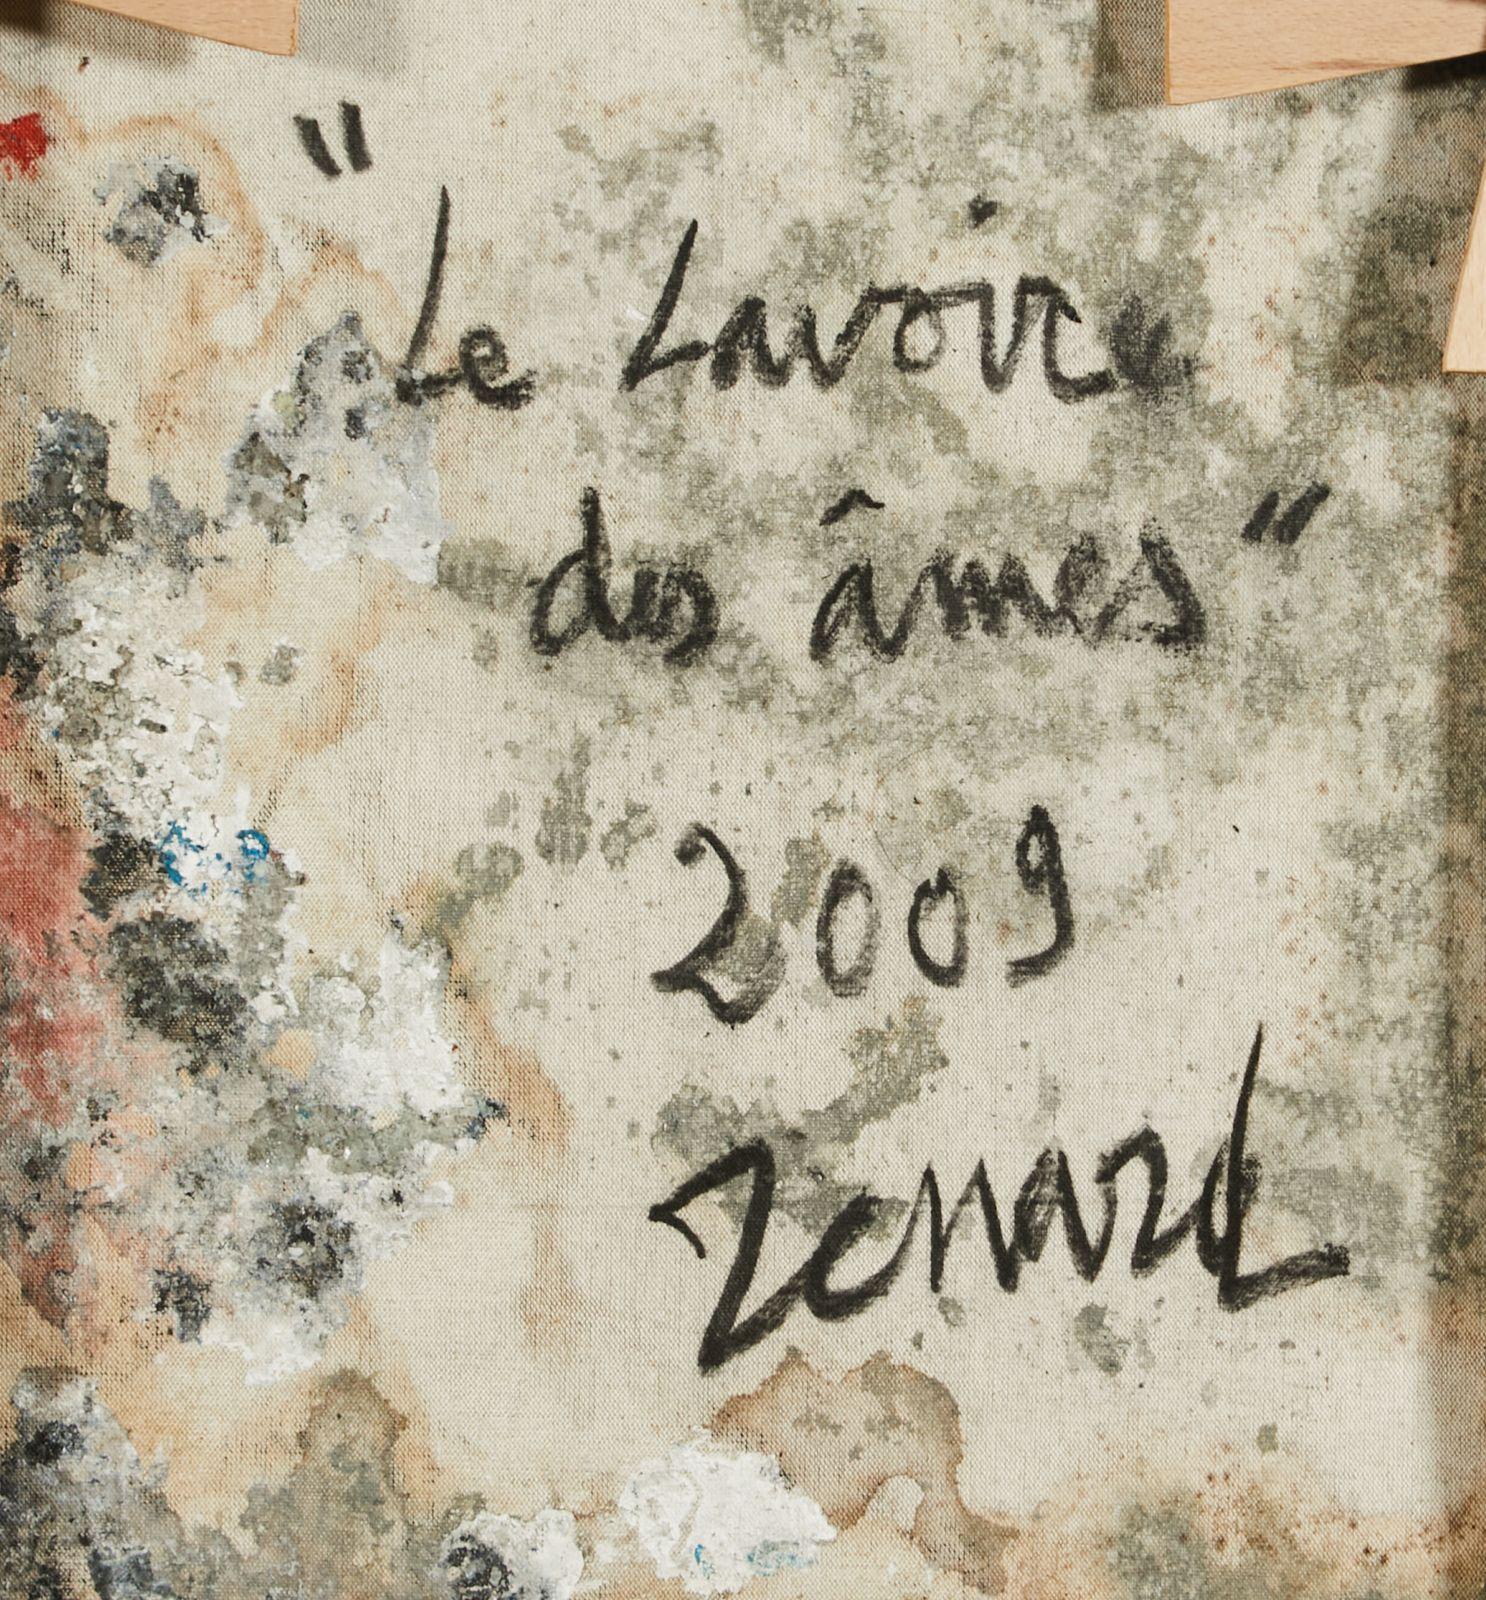 "Le Lavoir
des âmes"
2009